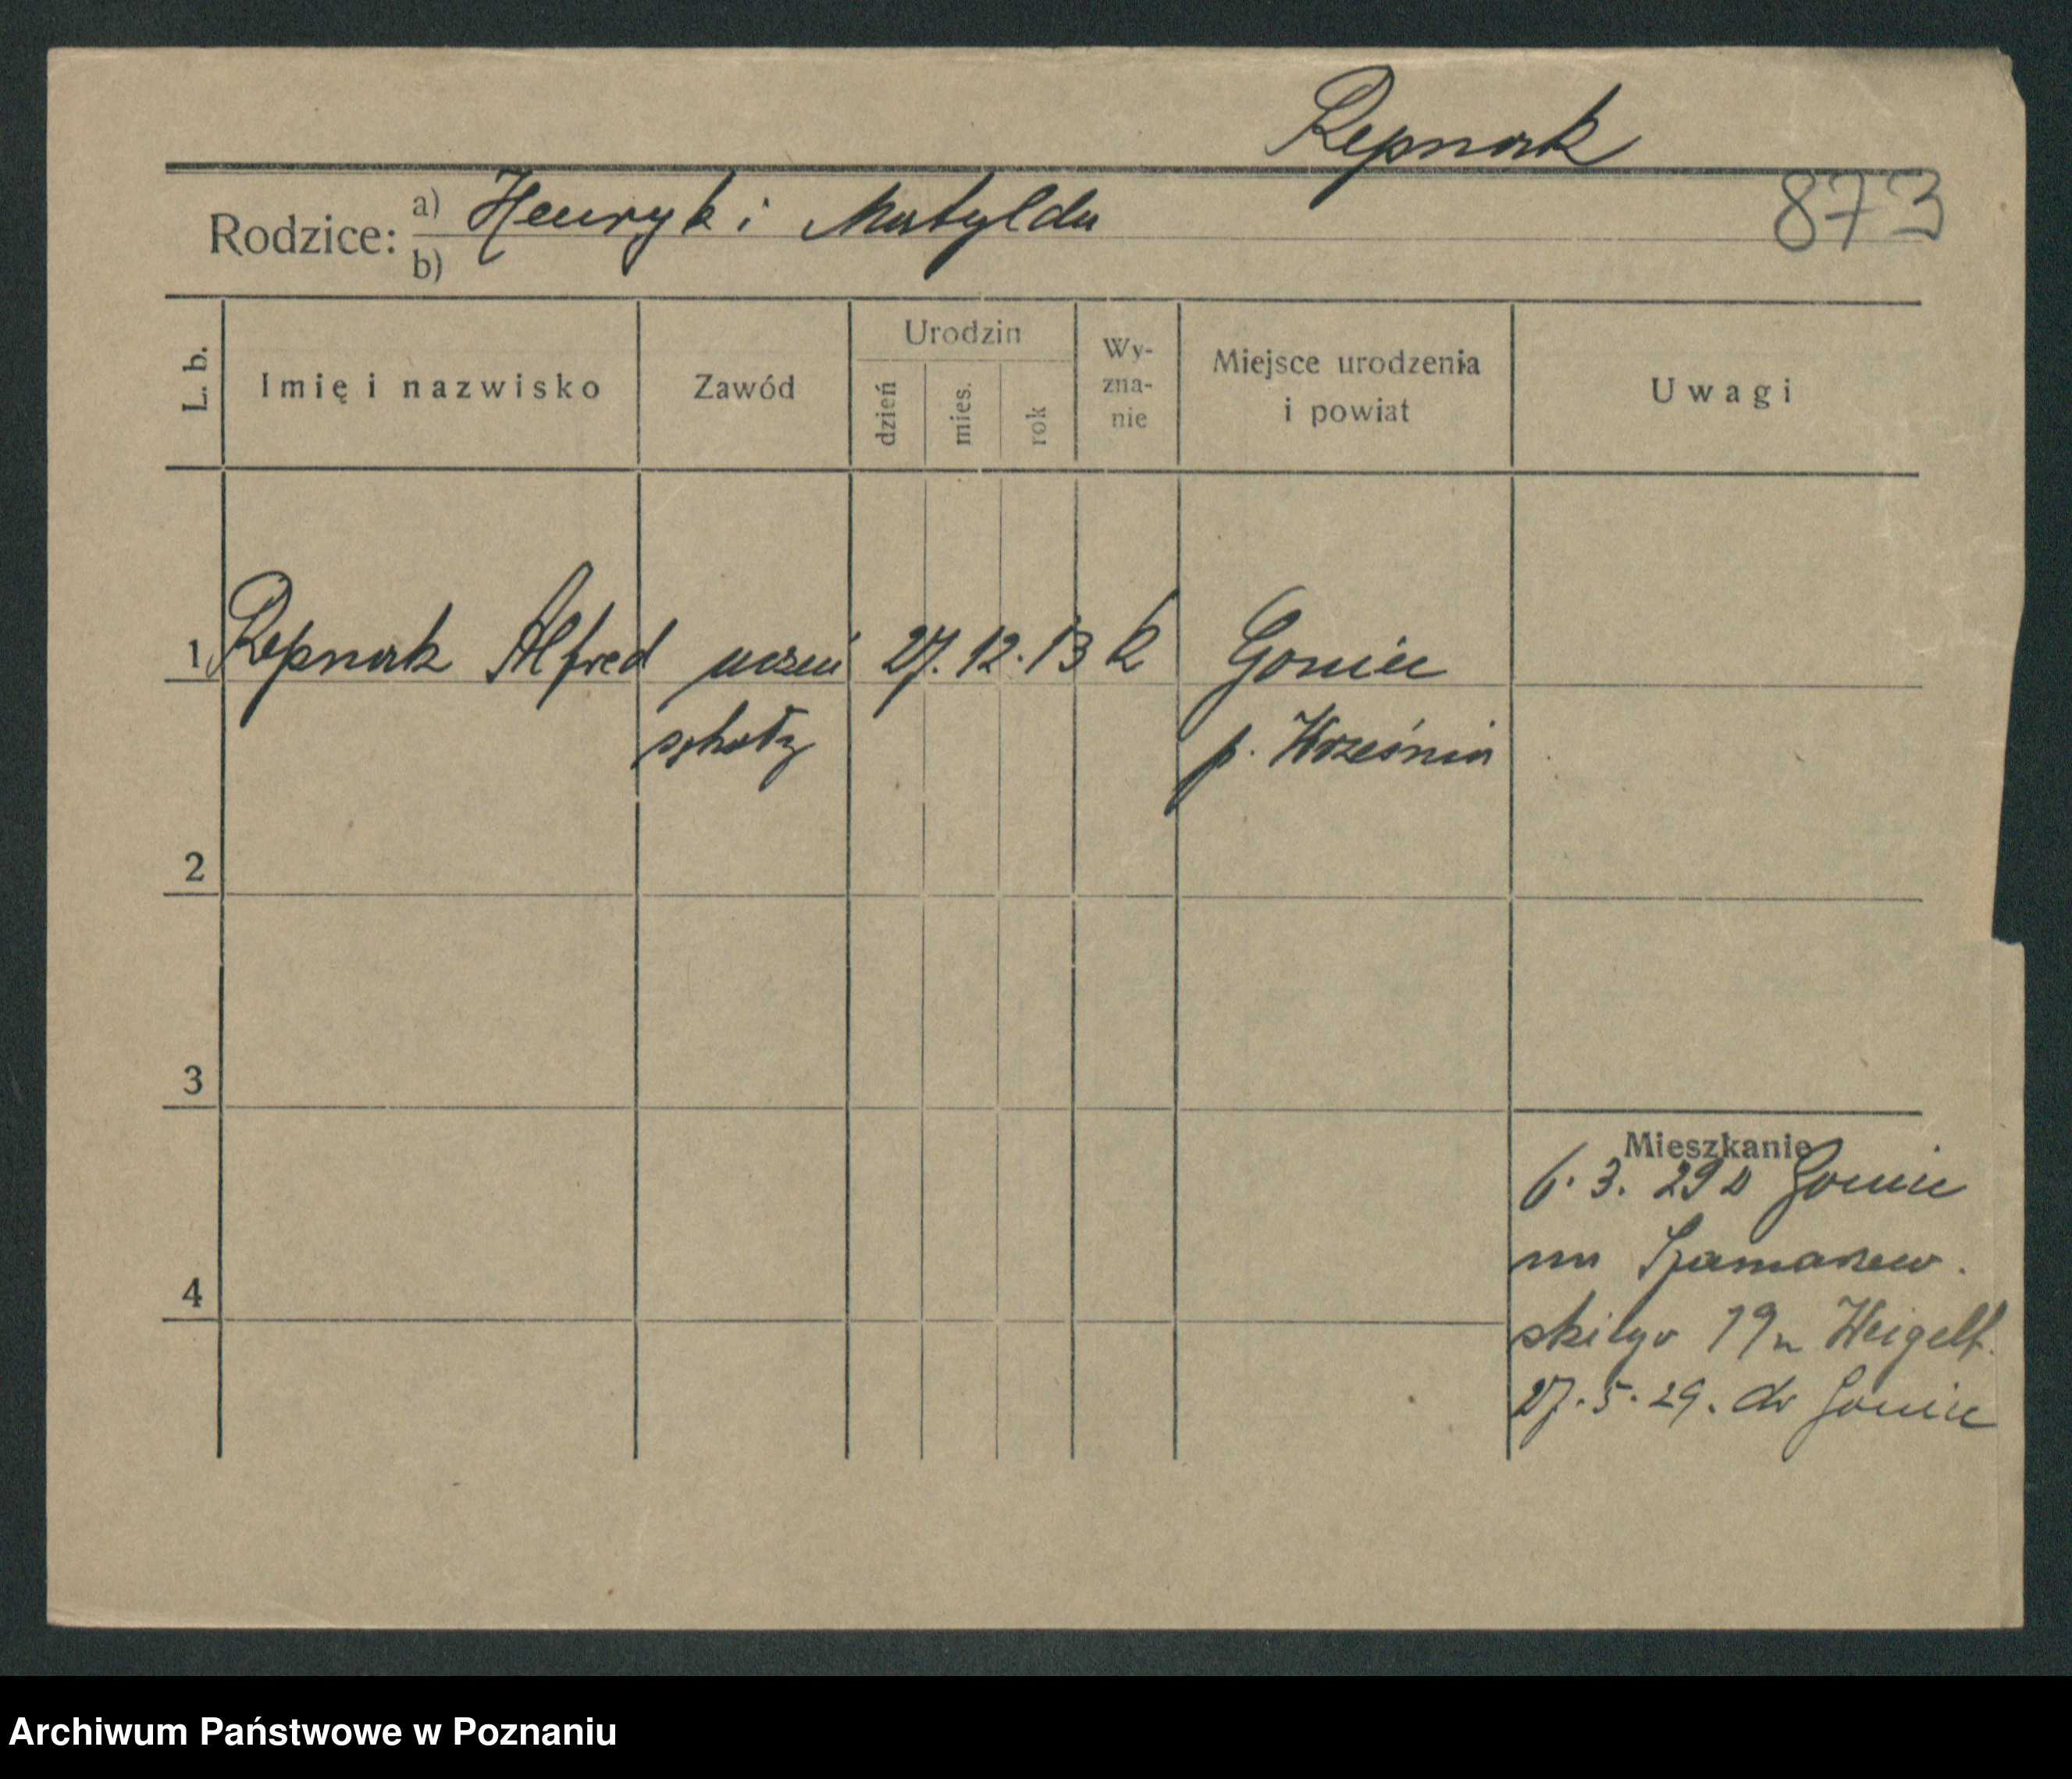 Repnak
873
Rodzice: a) Henryk i Matylda
b)
L. b. Imię i nazwisko Zawód Urodzin dzień mies. rok Wy-zna-nie Miejsce urodzenia i powiat Uwagi
1 Repnak Alfred uczeń 27. 12. 13 k Gonice
szkoły p. Września
2
3
4
Mieszkanie
6. 3. 29 z Gonice
na Szamarzew.
skiego 19 u Weigelt.
27. 5. 29. do Gonice
Archiwum Państwowe w Poznaniu